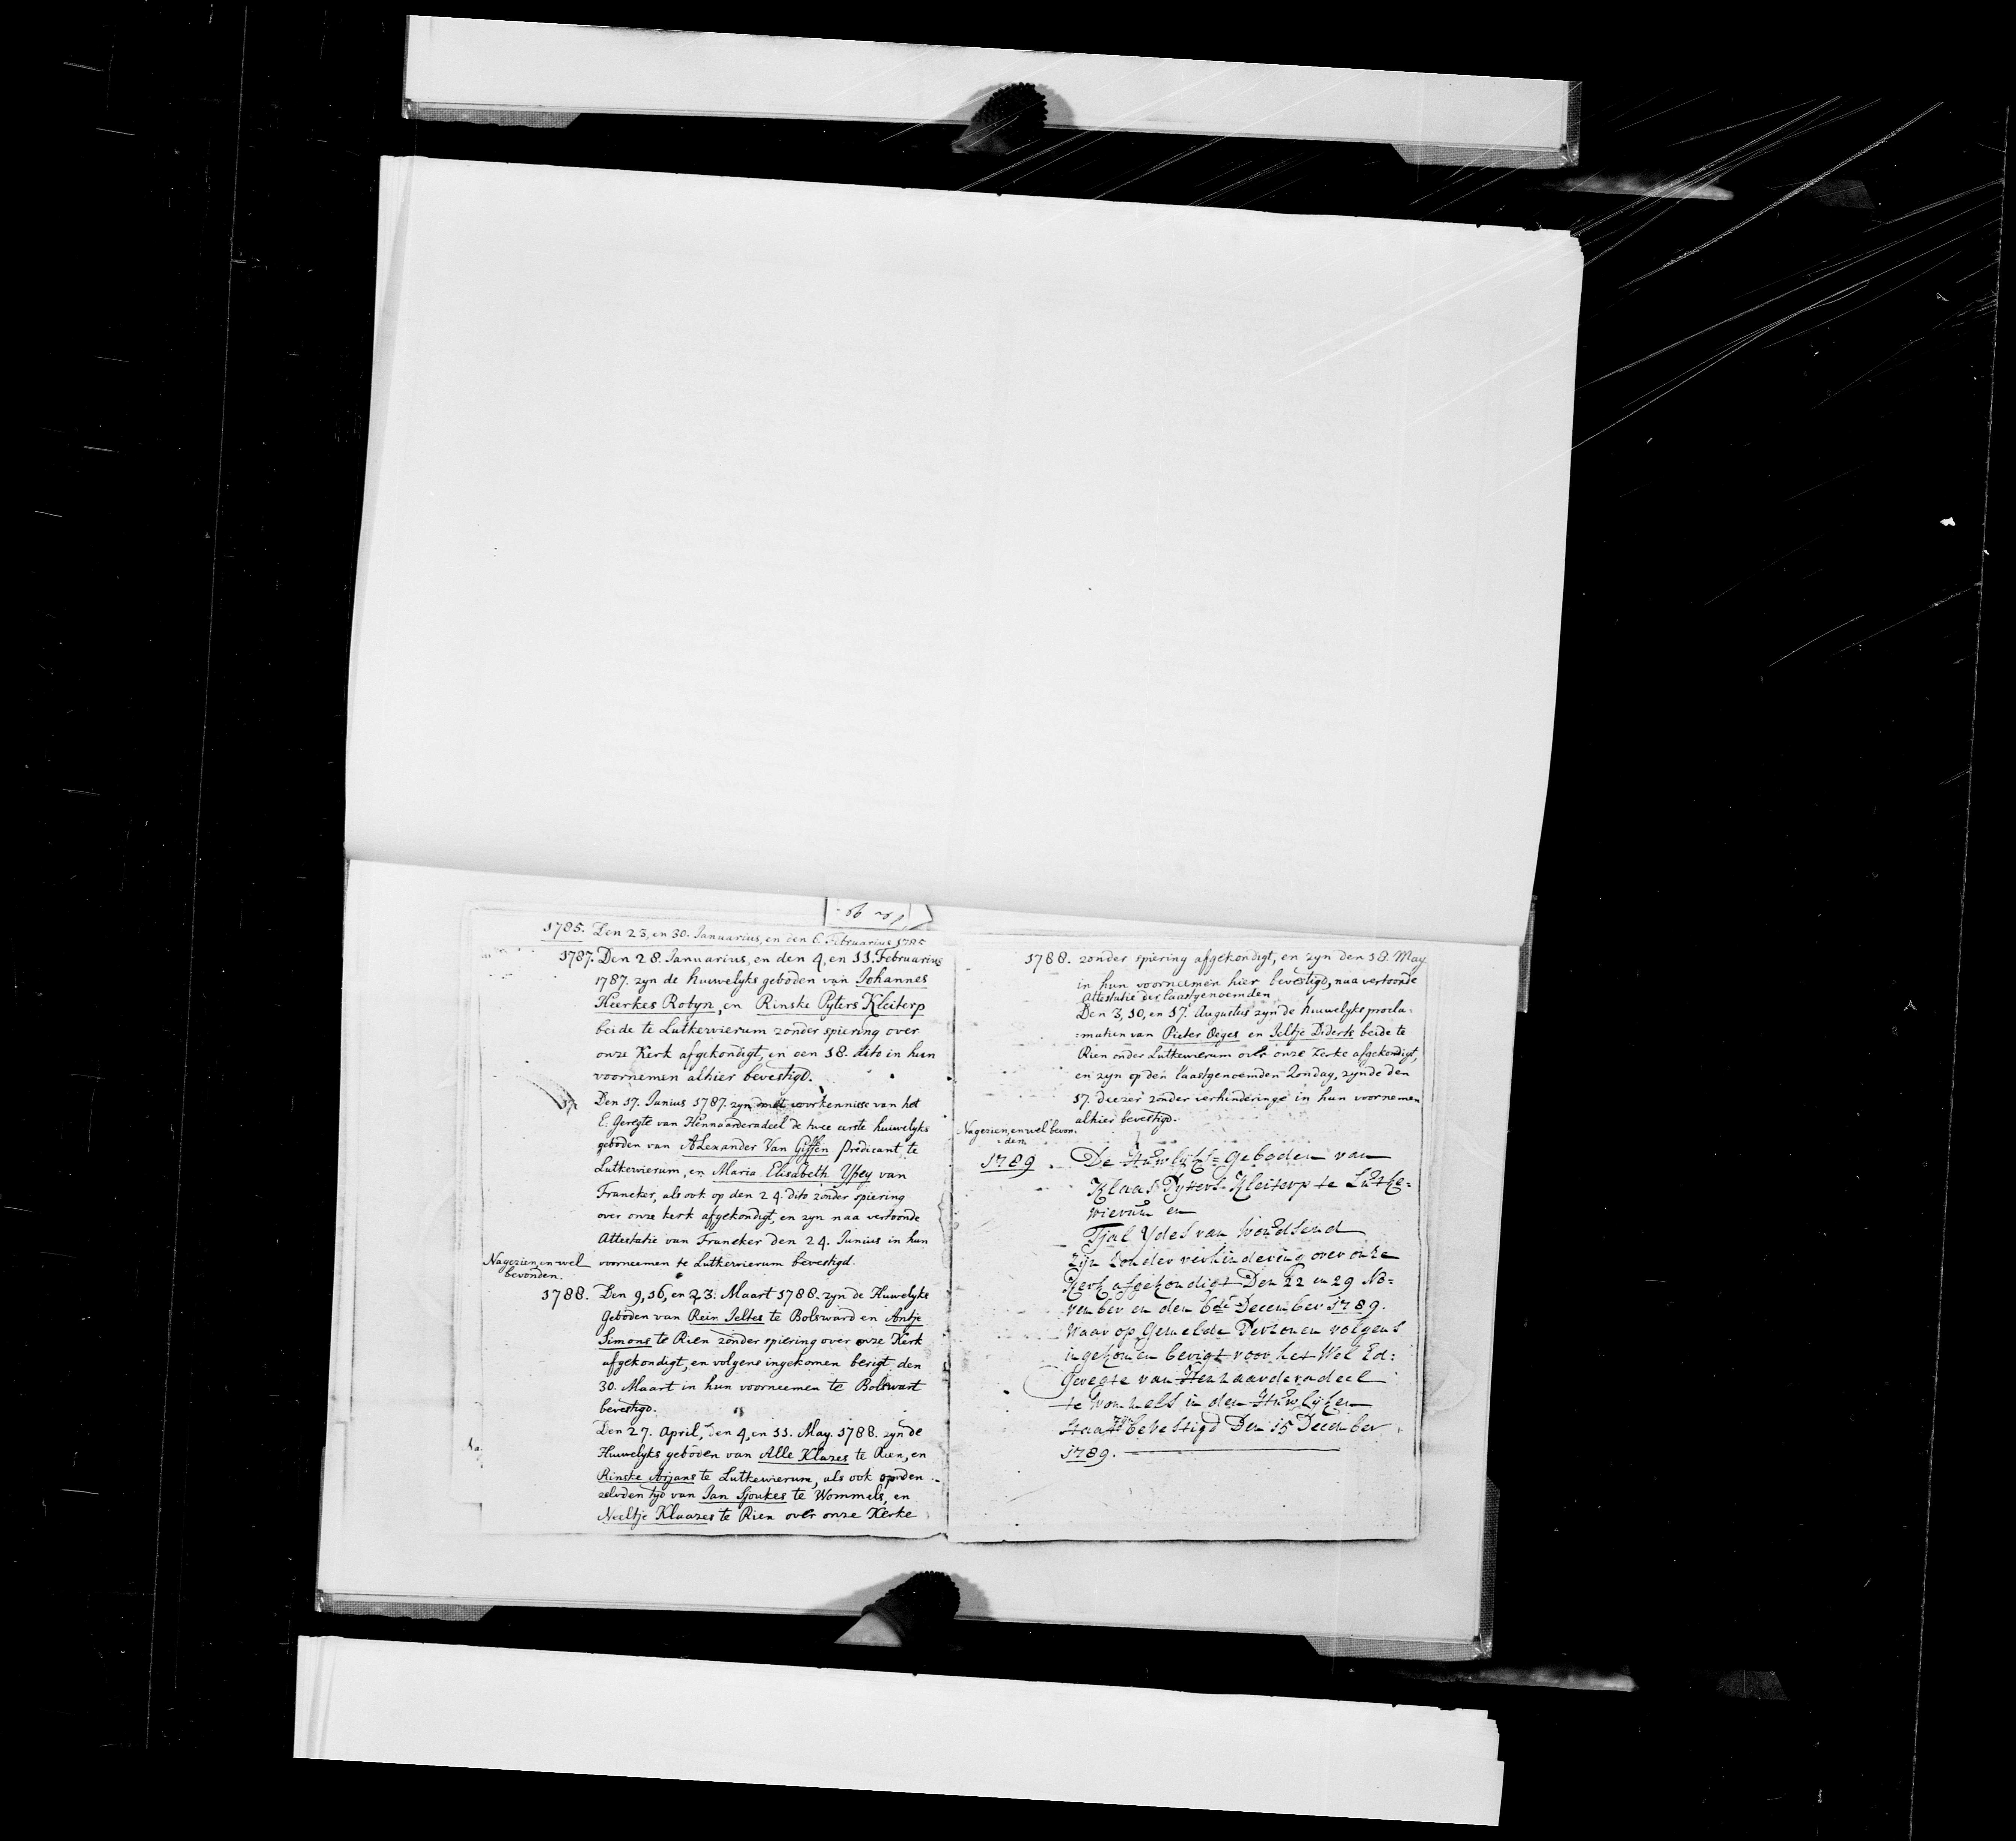 1785. Den 23, en 30. Januarius, en den 6. Februarius 1785
1787. Den 28. Januarius, en den 4, en 11. Februarius
1787. zyn de huuwelyks geboden van Johannes
Heerkes Robyn, en Rinske Pyters Kleiterp
beide te Lutkewierum zonder spiering over
onze Kerk afgekondigt, en den 18. dito in hun
voornemen alhier bevestigd.
Den 17. Junius 1787. zyn met voorkennisse van het
E. Geregte van Hennaarderadeel de twee eerste huiwelyks
geboden van Alexander Van Giffen Predicant te
Lutkewierum, en Maria Elisabeth Ypey van
Franeker, als ook op den 24. dito zonder spiering
over onze kerk afgekondigt, en zyn naa vertoonde
Attestatie van Franeker den 24. Junius in hun
Nagezien, en wel voorneemen te Lutkewierum bevestigd.
bevonden.
1788. Den 9, 16, en 23. Maart 1788. zyn de Huwelyks
Geboden van Rein Jeltes te Bolsward en Antje
Simons te Rien zonder spiering over onze Kerk
afgekondigt, en volgens ingekomen berigt den
30. Maart in hun voorneemen te Bolswart
bevestigd.
Den 27. April, den 4, en 11. May. 1788. zyn de
Huuwelyks geboden van Alle Klazes te Rien, en
Rinske Arjans te Lutkewierum, als ook op den
zelvden tyd van Jan Sjoukes te Wommels, en
Neeltje Klaazes te Rien over onze Kerke
1788. zonder spiering afgekondigt, en zyn den 18. May
in hun voorneemen hier bevestigd, naa vertoonde
Attestatie der laastgenoemden
Den 3, 10, en 17. Augustus zyn de huuwelyks procla-
:matien van Pieter Oeges en Jeltje Diderk beide te
Rien onder Lutkewierum over onze Kerke afgekondigt,
en zyn op den laastgenoemden Zondag, zynde den
17. deezer zonder verhinderinge in hun voornemen
alhier bevestigd.
Nagezien, en wel bevon-
:den
1789. De Huwlijks=geboden van
Klaas Pijters Kleiterp te Lutke=
wierum en
Tjal Ydes van Woudsend
zijn zonder verhindering over onze
Kerk afgekondigt Den 22 en 29 No=
vember en den 6de December 1789.
Waar op gemelde Perzonen volgens
ingekomen berigt voor het Wel Ed:
Geregte van Hennaarderadeel
te Wommels in den Huwlijken
staat zijn bevestigd Den 15 December
1789.